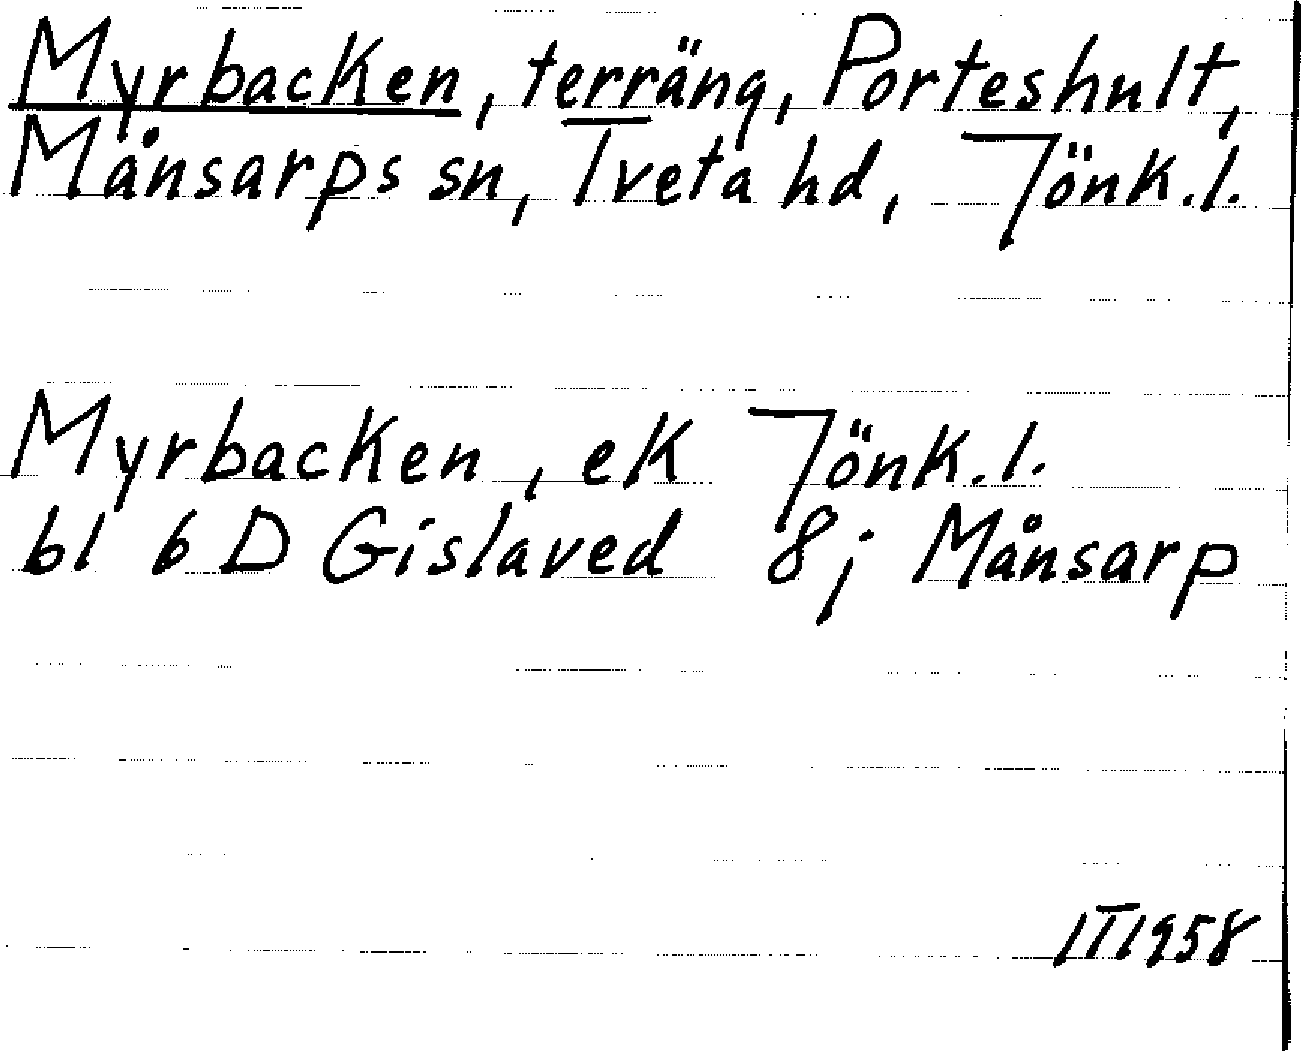 Myrbacken, terräng, Porteshult,
Månsarps sn, Tveta hd, Jönk.l.
Myrbacken, ek Jönk.l.
bl 6 D Gislaved 8j Månsarp